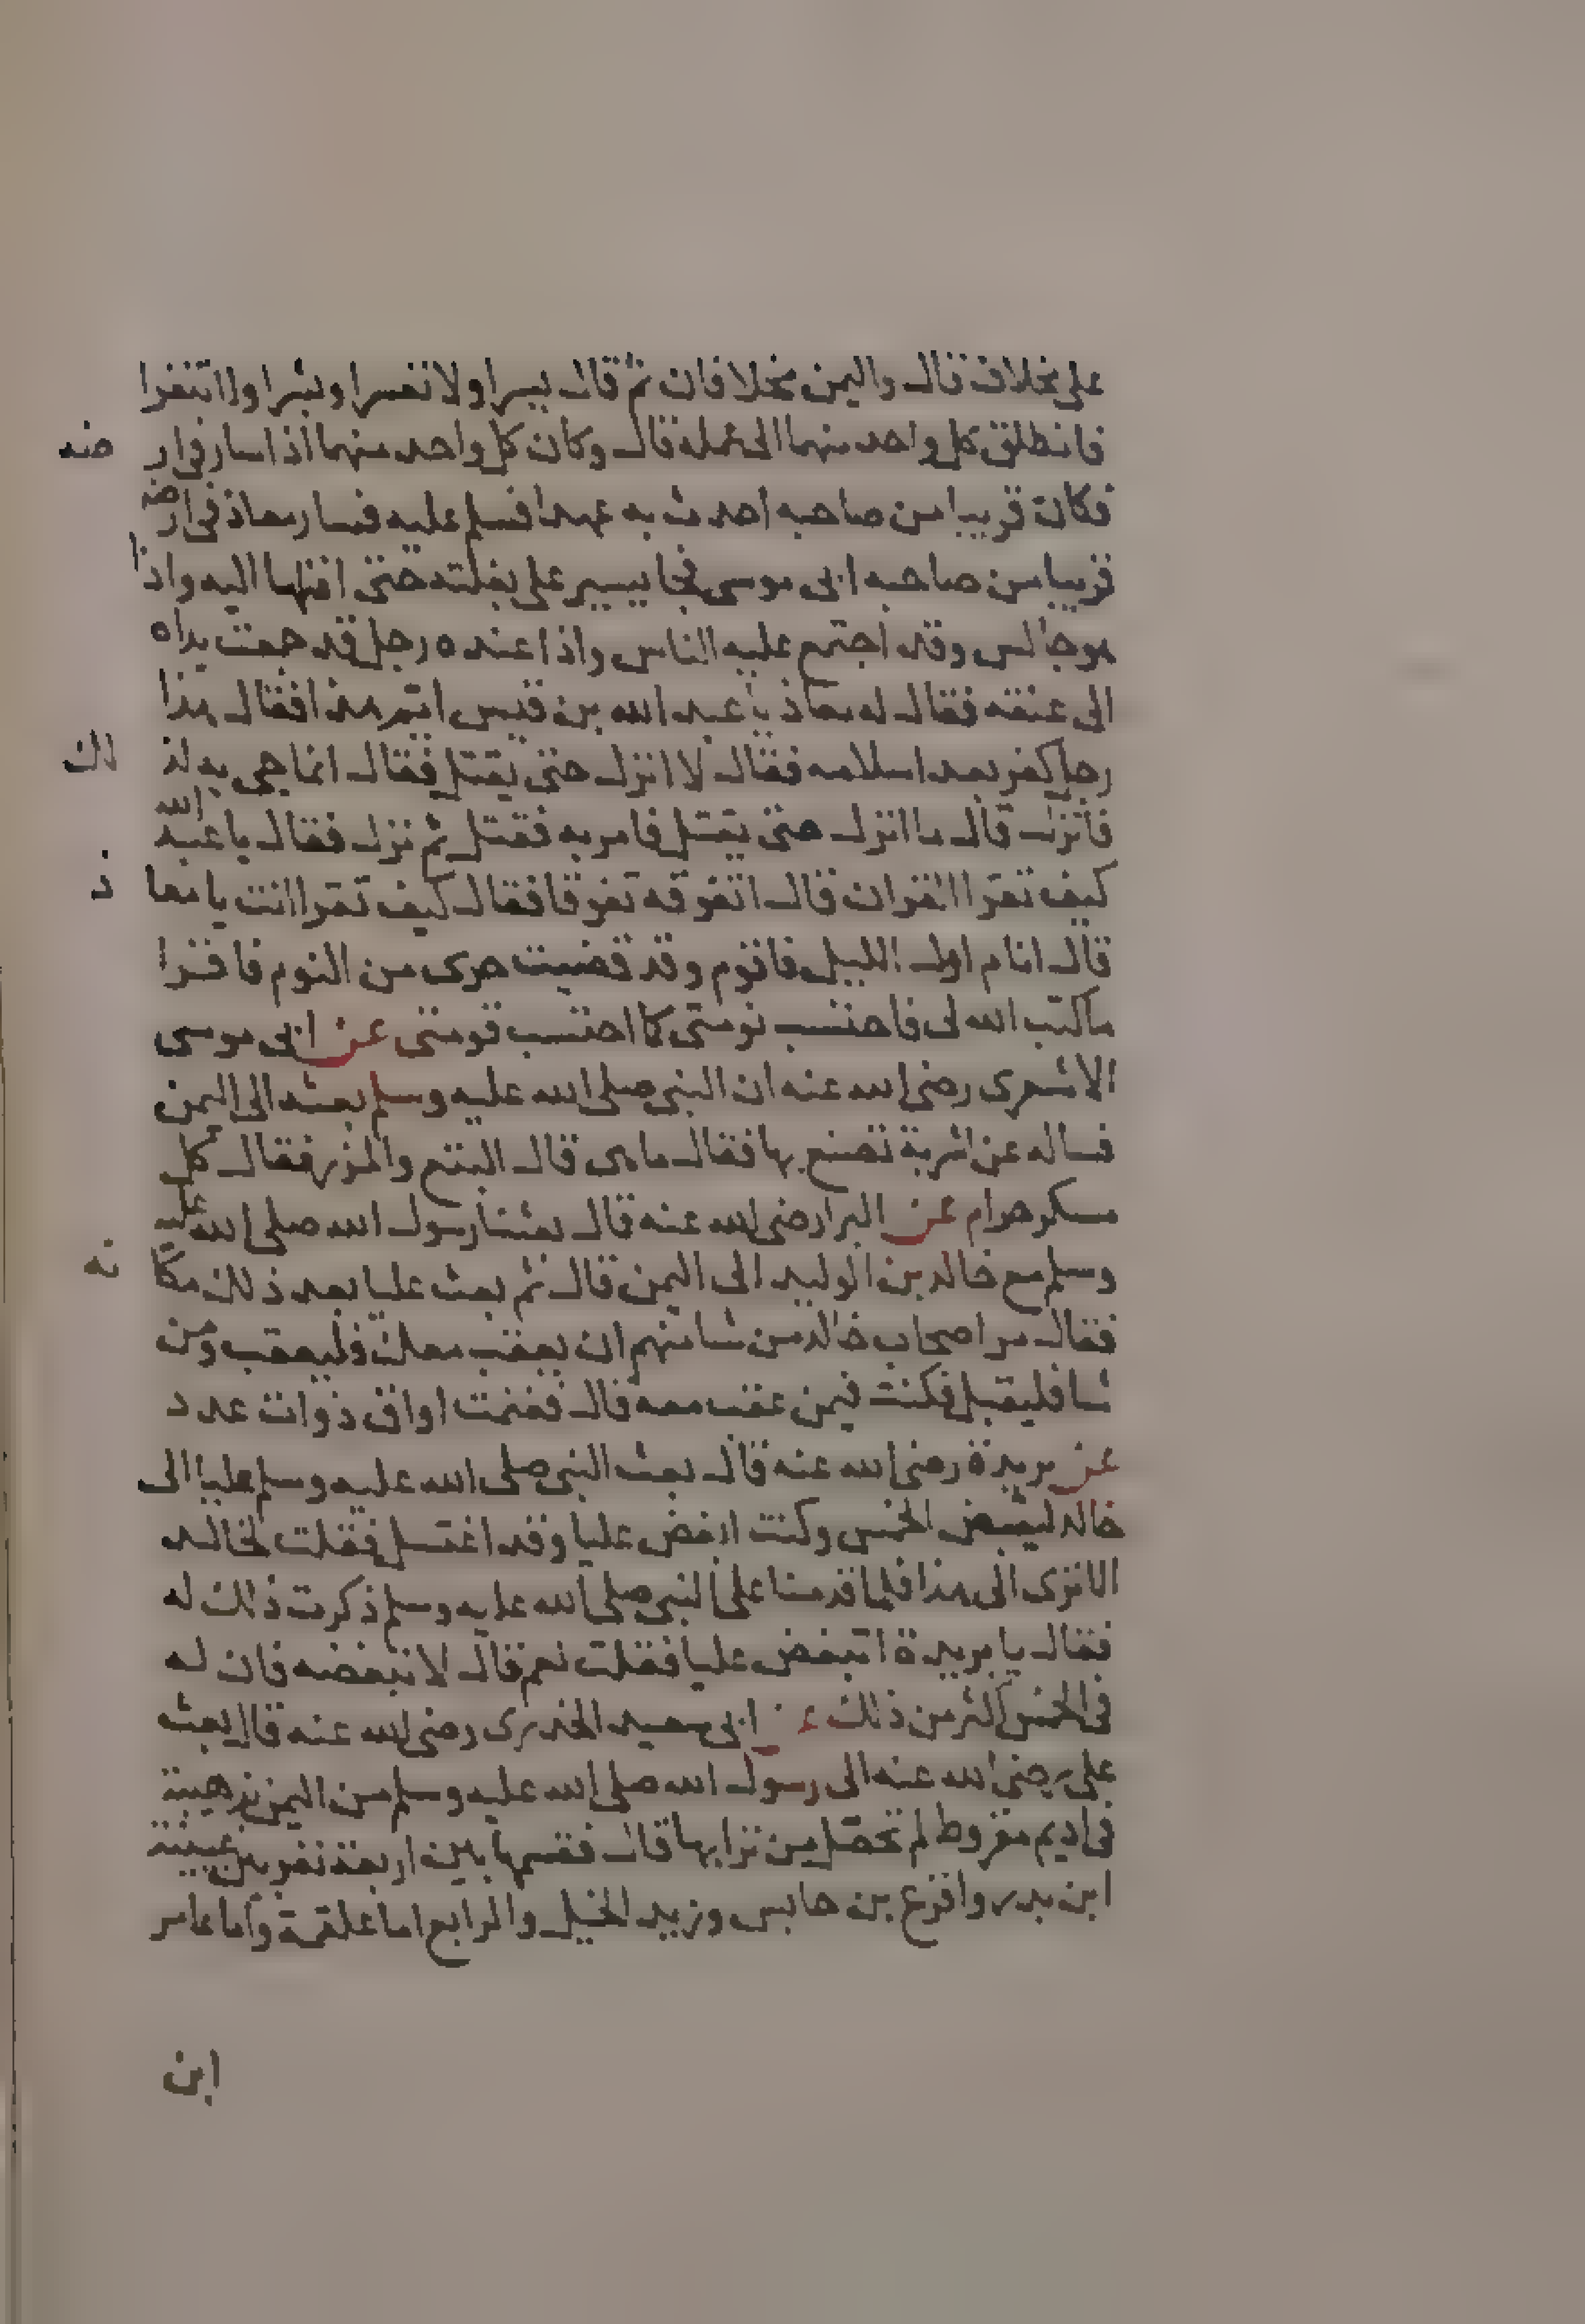 على مخلاف قال واليمن مخلافان ثم قال يسرا ولا تعسرا وبشرا ولا تنفرا
فانطلق كل واحد منهما الى عمله قال وكان كل واحد منهما اذا سار في ار ضه
فكان قريبا من صاحبه احدث به عهدا فسلم عليه فسار معاذ في ارضه
قريبا من صاحبه ابي موسى فجا يسير على بغلته حتى انتها اليه واذا
هو جالس وقد اجتمع عليه الناس واذا عنده رجل قد جمعت يداه
الى عنقه فقال له معاذ يا عبد الله بن قيس ايم هذا فقال هذا
رجل كفر بعد اسلامه فقال لا انزل حتى يقتل فقال انما جي به لذ لك
فانزل قال ما انزل حتى يقتل فامر به فقتل ثم نزل فقال يا عبد الله
كيف تقرا القران قال اتفوقه تفوقا فقال كيف تقرا انت يا معا ذ
قال انام اول الليل فاقوم وقد قضيت جزى من النوم فاقرا
ما كتب الله لي فاحتسب نومتي كما احتسب قومتي عن ابي موسى
الاشعري رضي الله عنه ان النبي صلى الله عليه وسلم بعثه الى اليمن
فساله عن اشربة تصنع بها فقال ما هي قال البتع والمزر فقال كل
مسكر حرام عن البرا رضي الله عنه قال بعثنا رسول الله صلى الله عليه
وسلم مع خالد بن الوليد الى اليمن قال ثم بعث عليا بعد ذلك مكا نه
فقال مر اصحاب خالد من شا منهم ان يعقب معك فليعقب ومن
شا فليقبل فكنت فيمن عقب معه قال فغنمت اواق ذوات عدد
عن بريدة رضي الله عنه قال بعث النبي صلى الله عليه وسلم عليا الى
خالد ليقبض الخمس وكنت ابغض عليا وقد اغتسل فقلت لخالد
الا ترى الى هذا فلما قدمنا على النبي صلى الله عليه وسلم ذكرت ذلك له
فقال يا بريدة اتبغض عليا فقلت نعم قال لا تبغضه فان له
في الخمس اكثر من ذلك عن ابي سعيد الخدري رضي الله عنه قال بعث
علي رضي الله عنه الى رسول الله صلى الله عليه وسلم من اليمن بذهيبة
في اديم مقروط لم تحصل من ترابها قال فقسمها بين اربعة نفر بين عيينة
ابن بدر واقرع بن حابس وزيد الخيل والرابع اما علقمة واما عامر
ابن